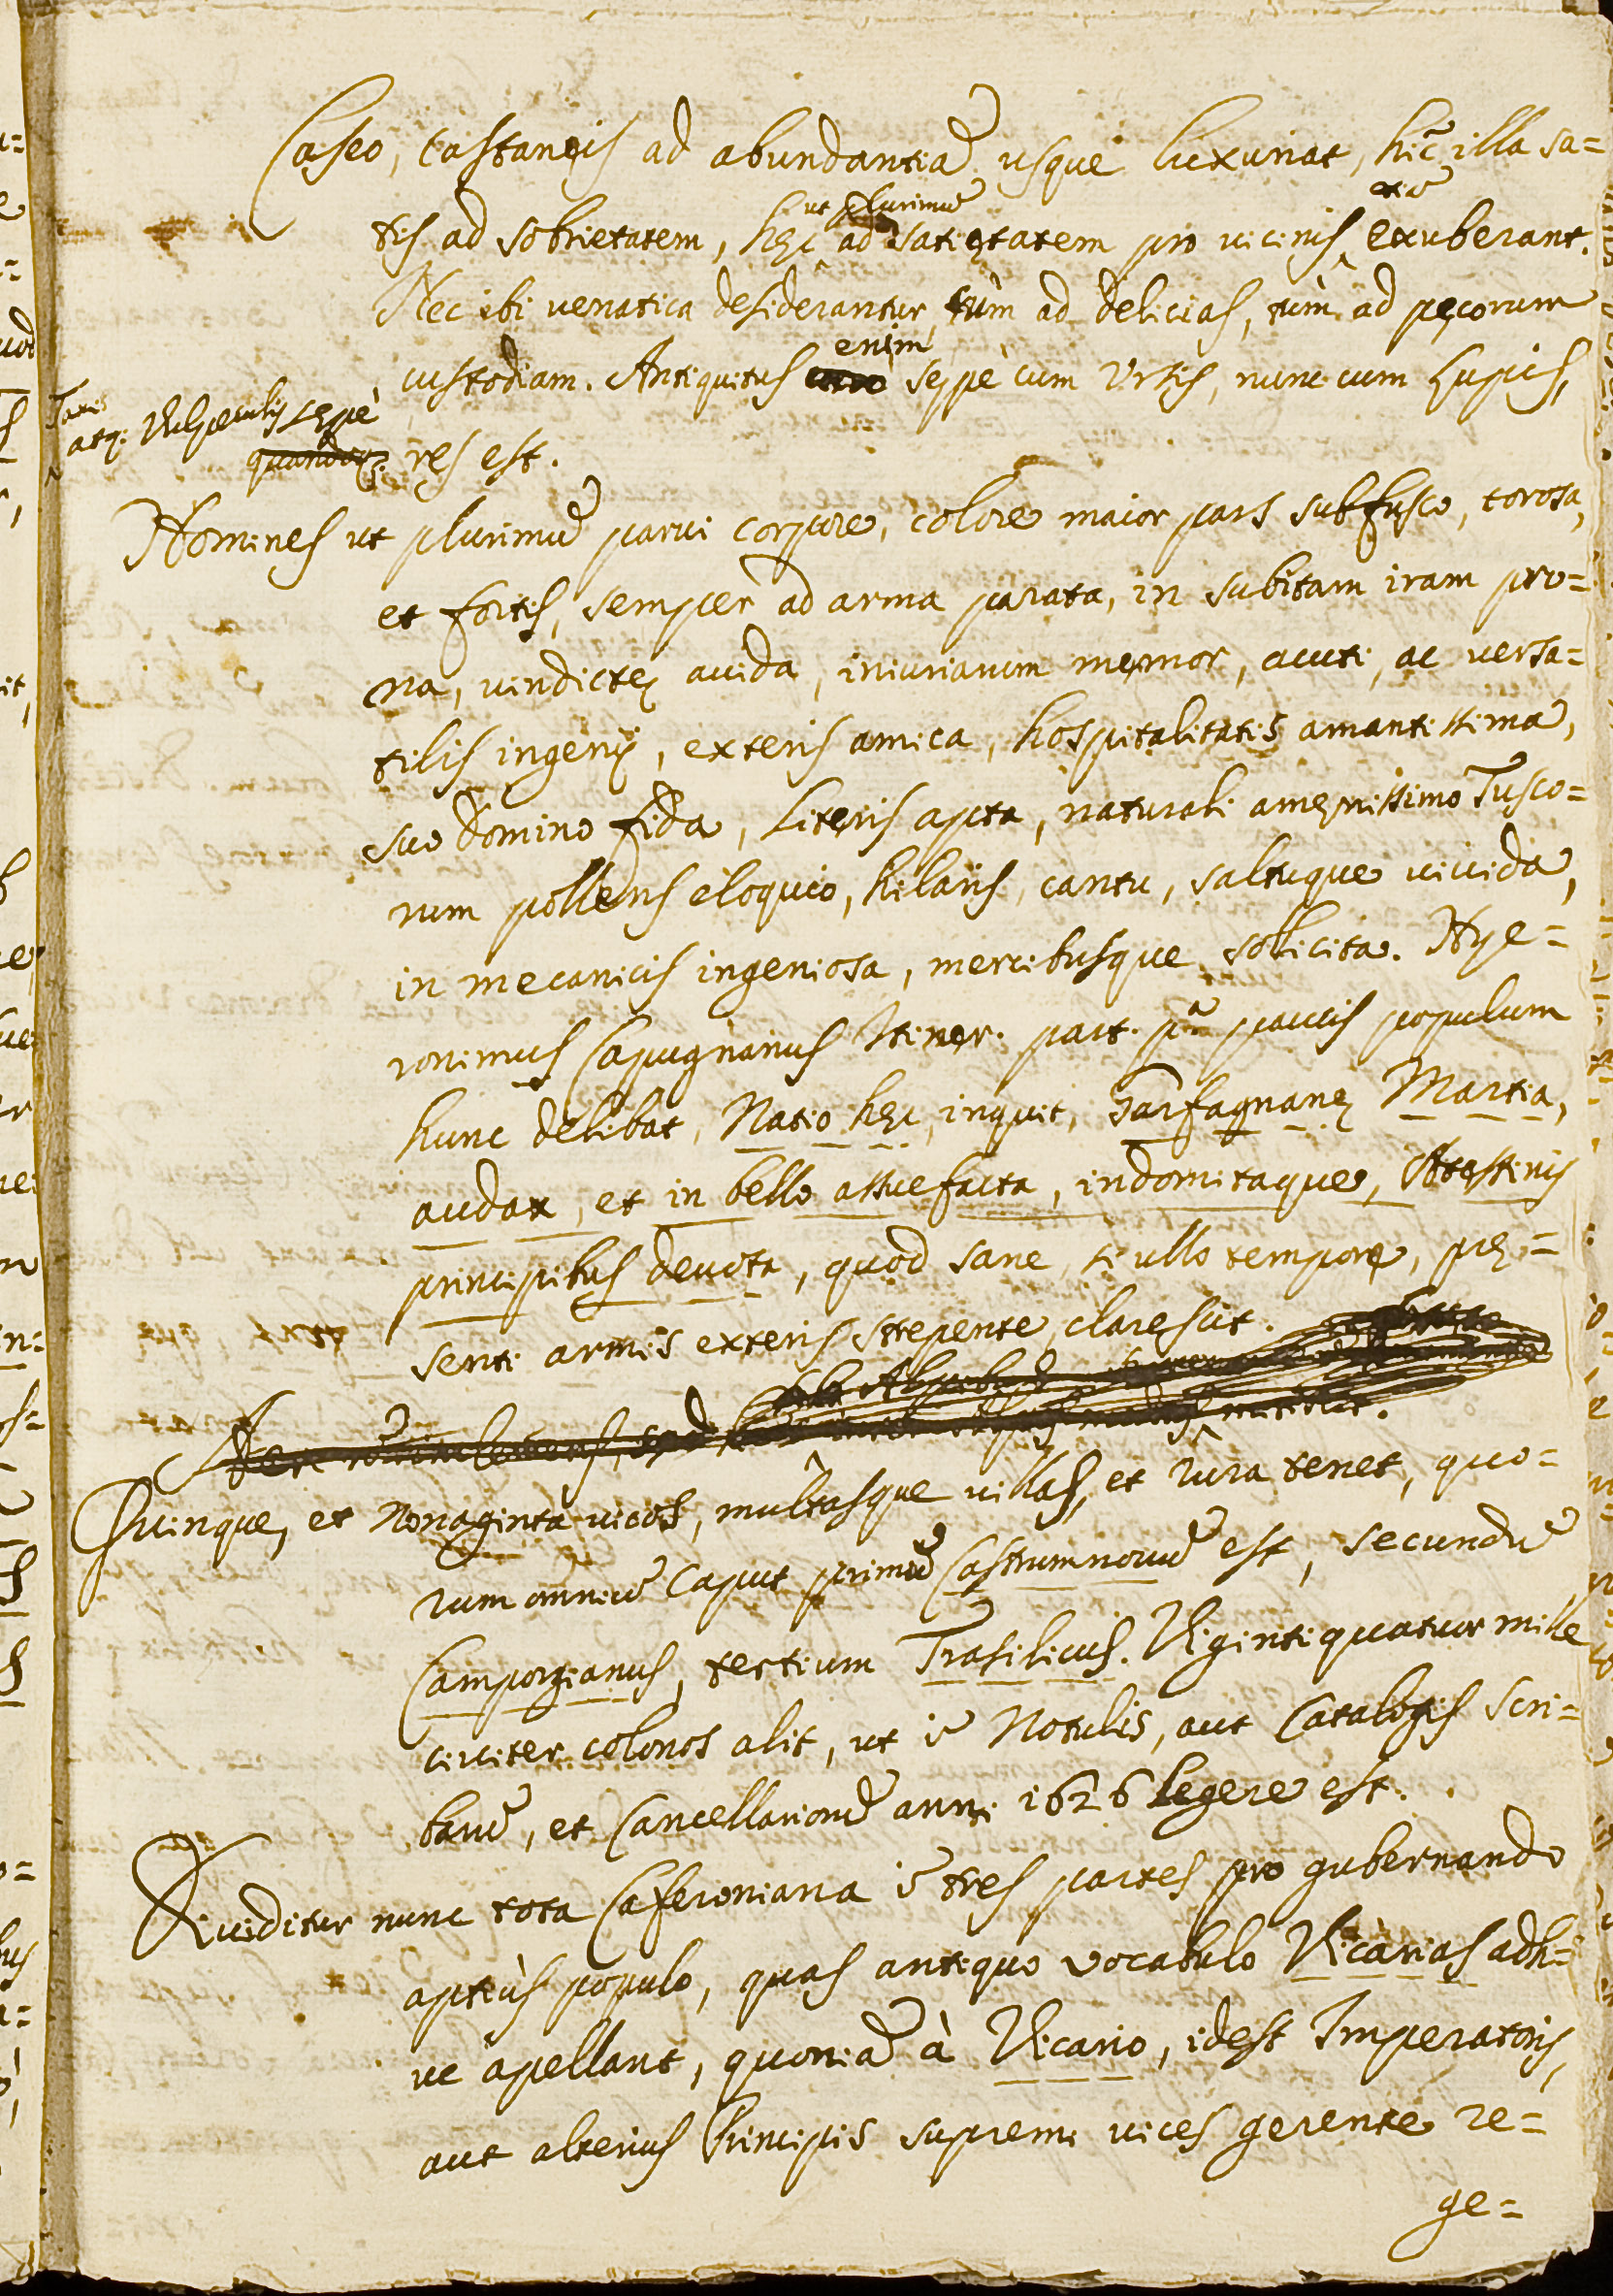 Caseo, castaneis ad abundantiã usque luxuriat, hĩc illa sa=
tis ad sobrietatem, hęc ut plurimũ ad satietatem pro uicinis etiã exuberant.
Nec ibi uenatica desiderantur, tùm ad delicias, tùm ad pęcorum
custodiam. Antiquitus enim sępè cum Ursis, nunc cum Lupis,
atq; Vulpeculis sępè
res est.
Homines ut plurimũ parui corpore, colore maior pars subfusco, torosa,
et fortis, semper ad arma parata, in subitam iram pro=
na, uindictę auida, iniuriarum memor, acuti, ac uersa=
tilis ingenij, exteris amica, hospitalitatis amantissima,
suo domino fida, literis apta, naturali amęnissimo Tusco=
rum pollens eloquio, hilaris, cantu, saltuque uiuida,
in mecanicis ingeniosa, mercibusque sollicita. Hye=
ronimus Capugnanus Itiner. part. pª paucis populum
hunc delibat, Natio hęc, inquit, Garfagnanę Martia,
audax, et in bello assuefacta, indomitaque, Atestinis
principibus deuota, quod sane, si ullo tempore, prę=
senti armis exteris strepente, clarescit.
Quinque, et Nonaginta uicos, multasque uillas, et rura tenet, quo=
rum omniũ Caput primũ Castrumnouũ est, secundũ
Camporgianus, tertium Trasilicus. Vigintiquatuor mille
circiter colonos alit, ut ĩ Notulis, aut Catalogis scri=
barũ, et Cancellariorũ anni 1626 legere est.
Diuiditur nunc tota Caferoniana ĩ tres partes pro gubernando
aptiùs populo, quas antiquo vocabulo Vicarias adh=
uc apellant, quoniã à Vicario, idest Imperatoris,
aut alterius Principis supremi uices gerente re=
ge=